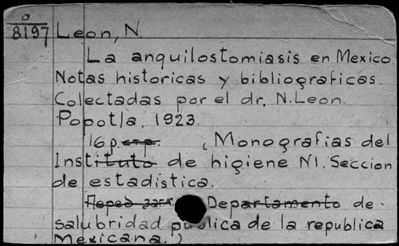 a
8197 Leon, N.
La anquilostomiasis en Mexico
Notas historicas y bibliograficas.
Colectadas por el dr. N. Leon.
Popotla, 1923.
16 p. (Monografias del
Instituto de higiene Nº1. Seccion
de estadistica.
Departamento de
salubridad publica de la republica
Mexicana.)